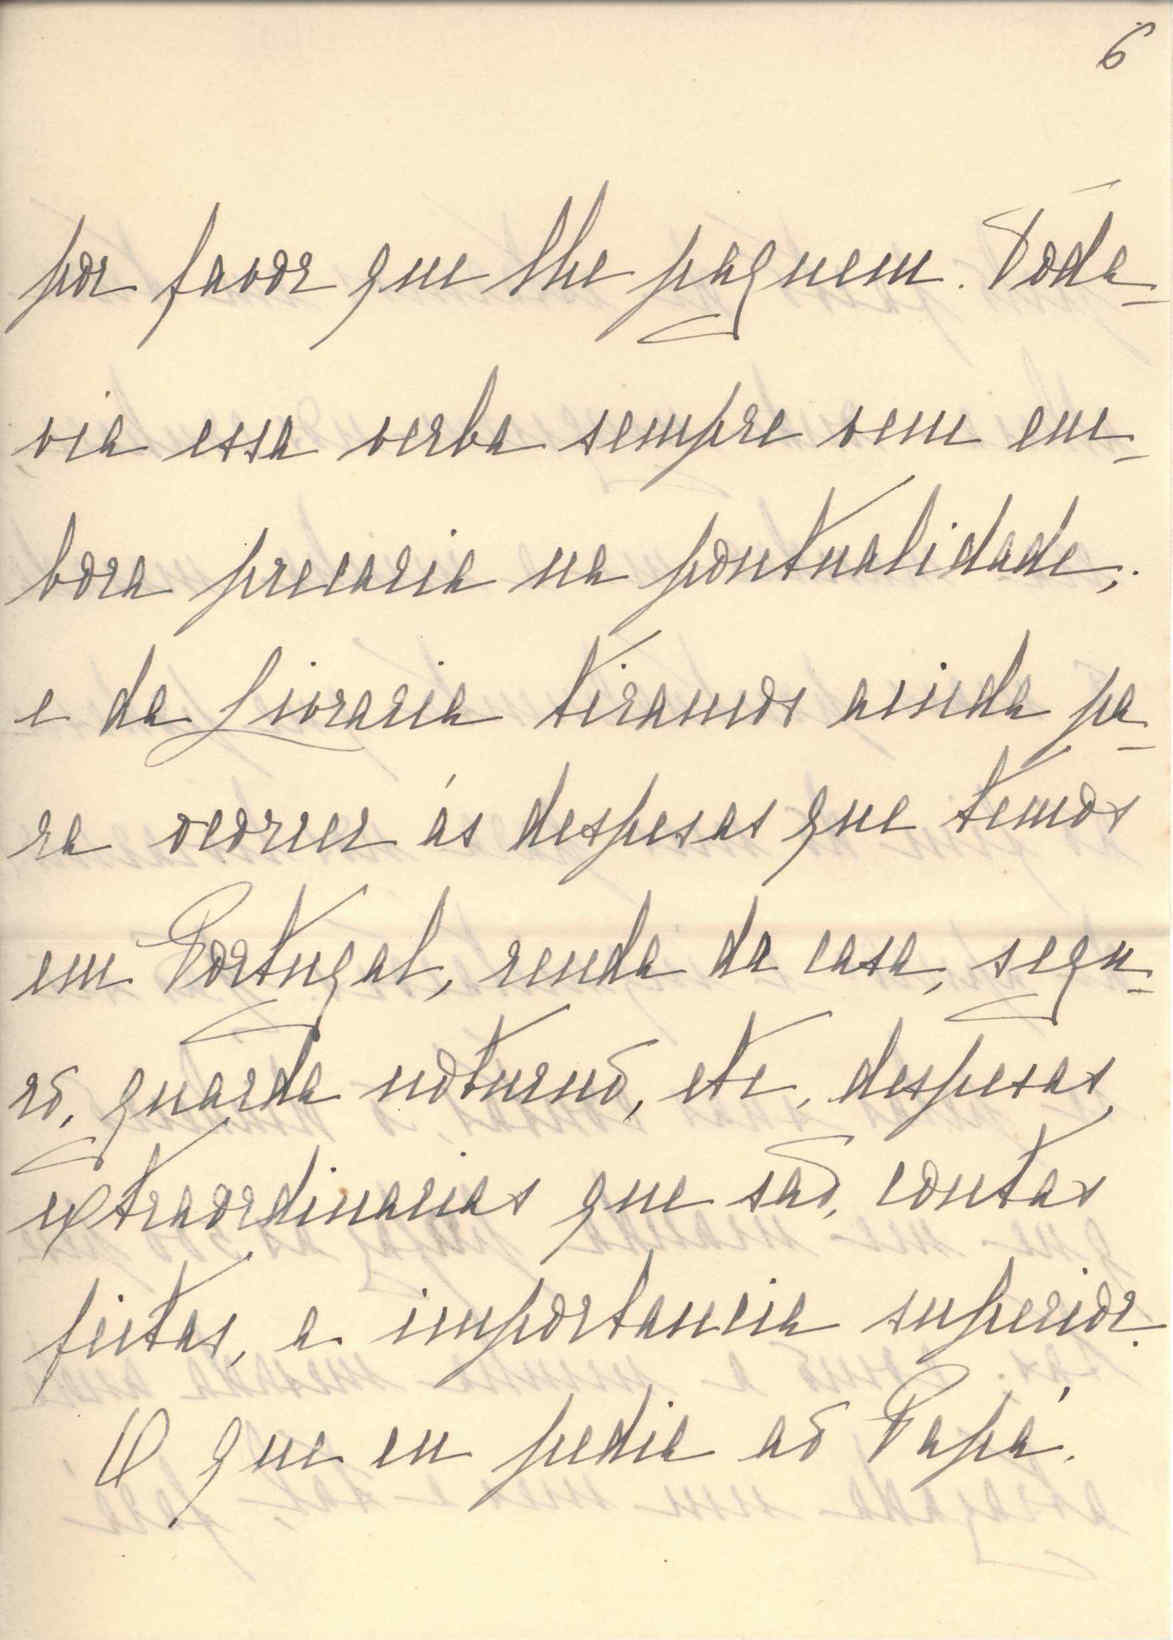 6
por favor que lhe paguem. Tôda-
via essa verba sempre vem em-
bora precaria na pontualidade,.
e da Livraria tiramos ainda pa-
ra ocorrer ás despesas que temos
em Portugal, renda da casa, segu-
ro, guarda noturno, etc, despesas
extraordinarias que são, contas
feitas, a importancia superior.
O que eu pedia ao Papá.